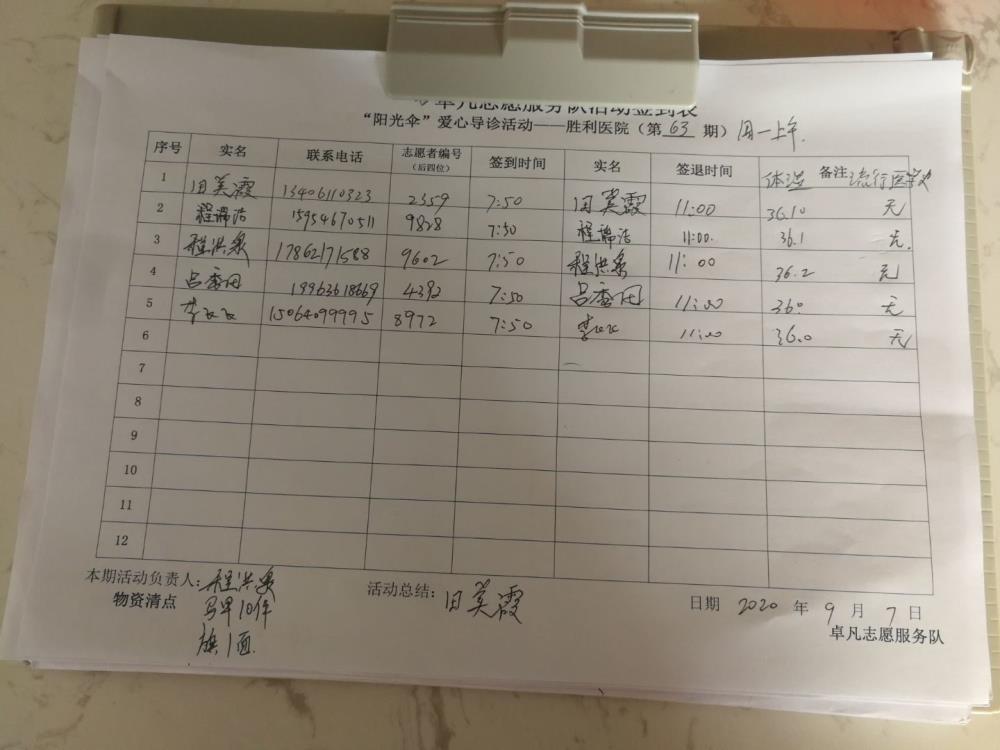 卓凡志愿服务队活动签到表
“阳光伞”爱心导诊活动——胜利医院（第 63 期）周一上午.
序号 实名 联系电话 志愿者编号（后四位） 签到时间 实名 签退时间 体温 备注 流行医学史
1 田美霞 13406110323 2359 7:50 田美霞 11:00 36.10 无
2 程瑞洁 15954670511 9828 7:50 程瑞洁 11:00. 36.1 无.
3 程洪泉 17862171588 9602 7:50 程洪泉 11:00 36.2 无
4 吕秀田 19963618669 4392 7:50 吕秀田 11:00 360 无
5 15064099995 8972 7:50 11:00 36.0 无
6
7
8
9
10
11
12
本期活动负责人：程洪泉 活动总结：田美霞 日期 2020 年 9 月 7 日
物资清点 马甲10件 卓凡志愿服务队
旗1面.